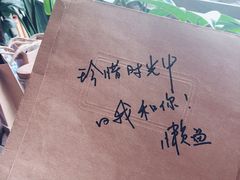 珍惜时光中
的我和你!
懒鱼